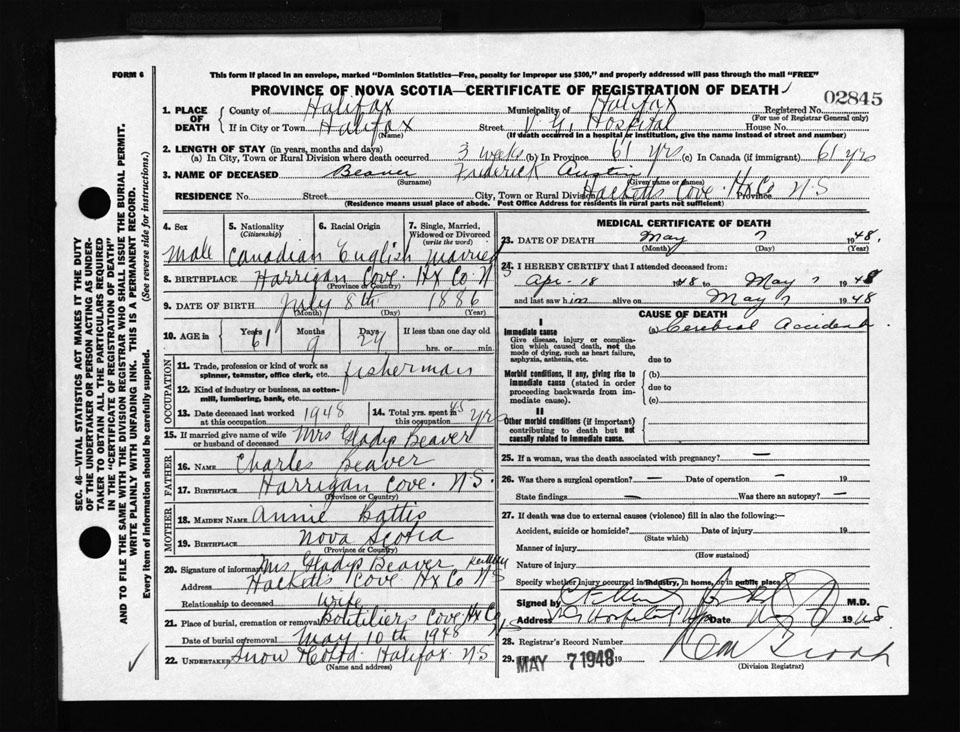 FORM 6
This form if placed in an envelope, marked "Dominion Statistics—Free, penalty for improper use $300," and properly addressed will pass through the mail "FREE"
PROVINCE OF NOVA SCOTIA—CERTIFICATE OF REGISTRATION OF DEATH
02845
1. PLACE OF DEATH
County of Halifax Municipality of Halifax Registered No.
(For use of Registrar General only)
If in City or Town Halifax Street V. G. Hospital House No.
(Name) (If death occurred in a hospital or institution, give the name instead of street and number)
2. LENGTH OF STAY (in years, months and days)
(a) In City, Town or Rural Division where death occurred 3 weeks (b) In Province 61 yrs (c) In Canada (if immigrant) 61 yrs
3. NAME OF DECEASED Beaver Frederick Austin
(Surname) (Given name or names)
RESIDENCE No. Street City, Town or Rural Division Hacketts Cove Hx Co Province N S
(Residence means usual place of abode. Post Office Address for residents in rural parts not sufficient)
4. Sex 5. Nationality (Citizenship) 6. Racial Origin 7. Single, Married, Widowed or Divorced (write the word)
Male Canadian English Married
8. BIRTHPLACE Harrigan Cove. Hx Co. N S
(Province or Country)
9. DATE OF BIRTH July 8th 1886
(Month) (Day) (Year)
10. AGE in Years Months Days If less than one day old
61 9 24 hrs. or min.
OCCUPATION
11. Trade, profession or kind of work as spinner, teamster, office clerk, etc. fisherman
12. Kind of industry or business, as cotton-mill, lumbering, bank, etc.
13. Date deceased last worked at this occupation 1948 14. Total yrs. spent in this occupation 45 yrs
15. If married give name of wife or husband of deceased Mrs Gladys Beaver
FATHER
16. NAME Charles Beaver
17. BIRTHPLACE Harrigan Cove. N.S.
(Province or Country)
MOTHER
18. MAIDEN NAME Annie
19. BIRTHPLACE Nova Scotia
(Province or Country)
20. Signature of informant Mrs Gladys Beaver
Address Hacketts Cove Hx Co N S
Relationship to deceased wife
21. Place of burial, cremation or removal Boutiliers Cove, Hx Co N S
Date of burial or removal May 10th 1948
22. UNDERTAKER Snow Co Ltd. Halifax N S
(Name and address)
MEDICAL CERTIFICATE OF DEATH
23. DATE OF DEATH May 7 1948.
(Month) (Day) (Year)
24. I HEREBY CERTIFY that I attended deceased from:
Apr. 18 1948 to May 7 1948
and last saw him alive on May 7 1948
CAUSE OF DEATH
I
Immediate cause (a) Cerebral Accident
Give disease, injury or complication which caused death, not the mode of dying, such as heart failure, asphyxia, asthenia, etc. due to
Morbid conditions, if any, giving rise to immediate cause (stated in order proceeding backwards from immediate cause).
(b)
due to
(c)
II
Other morbid conditions (if important) contributing to death but not causally related to immediate cause.
25. If a woman, was the death associated with pregnancy? —
26. Was there a surgical operation? — Date of operation — 19
State findings — Was there an autopsy? —
27. If death was due to external causes (violence) fill in also the following:—
Accident, suicide or homicide? Date of injury 19
(State which)
Manner of injury
(How sustained)
Nature of injury
Specify whether injury occurred in industry, in home, or in public place
Signed by M.D.
Address V G Hospital 1948.
28. Registrar's Record Number
29. MAY 7 1948 19
(Division Registrar)
SEC. 46—VITAL STATISTICS ACT MAKES IT THE DUTY
OF THE UNDERTAKER OR PERSON ACTING AS UNDER-
TAKER TO OBTAIN ALL THE PARTICULARS REQUIRED
IN THE "CERTIFICATE OF REGISTRATION OF DEATH"
AND TO FILE THE SAME WITH THE DIVISION REGISTRAR WHO SHALL ISSUE THE BURIAL PERMIT.
WRITE PLAINLY WITH UNFADING INK. THIS IS A PERMANENT RECORD.
Every item of information should be carefully supplied. (See reverse side for instructions.)